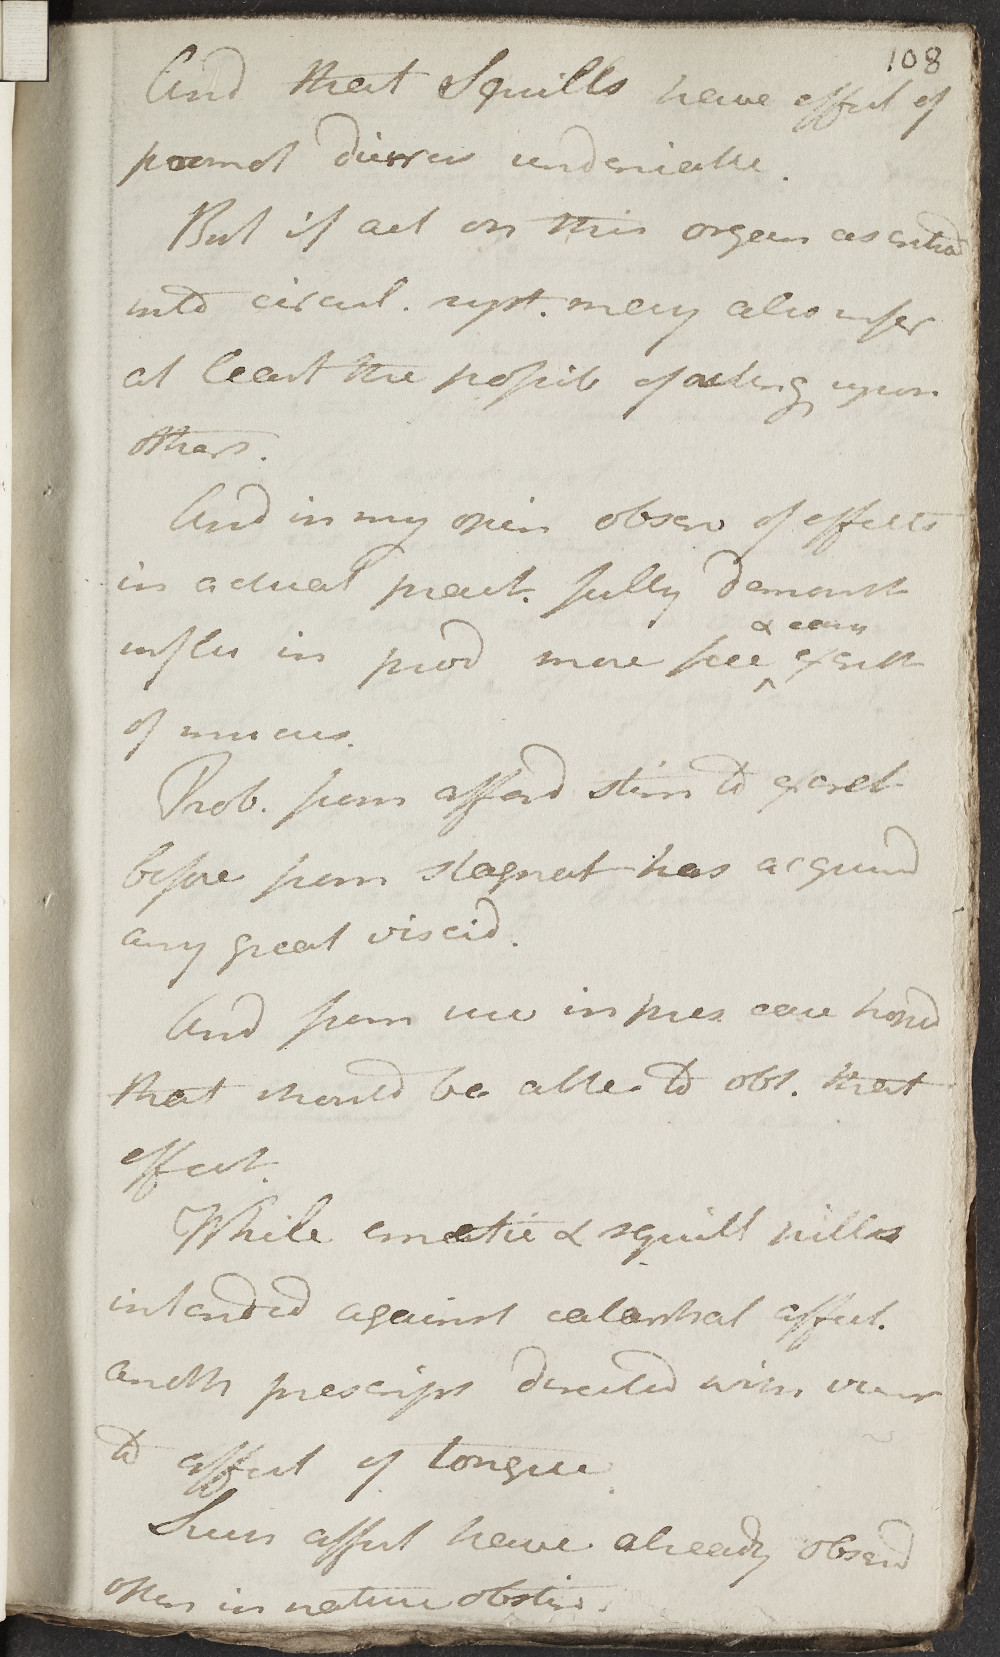 108
And that Squills have effect of
promot diures undeniable.
But if act on this organ as entrd
into circul. syst. may also infer
at least the possib of acting upon
others.
And in my opin observ of effects
in actual pract. fully demonst
influ in prod more free ^ excret
& easy
of mucus.
Prob. from afford stim to excret
before from stagnat has acquird
any great viscid.
And from use in pres case hoped
that should be able to obt. that
effect.
While emetic & squill pills
intended against catarrhal affect.
anoth prescript directed with view
to affect of tongue
Such affect have already observd
often in nature obstin.